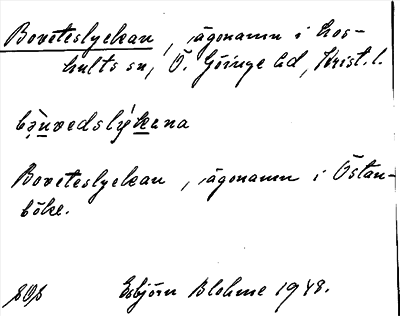 Boveteslyckan, ägonamn i Los-
hults sn, Ö. Göinge hd, Krist. l.
Boveteslyckan, ägonamn i Östan-
böke.
Esbjörn Blohme 1948.